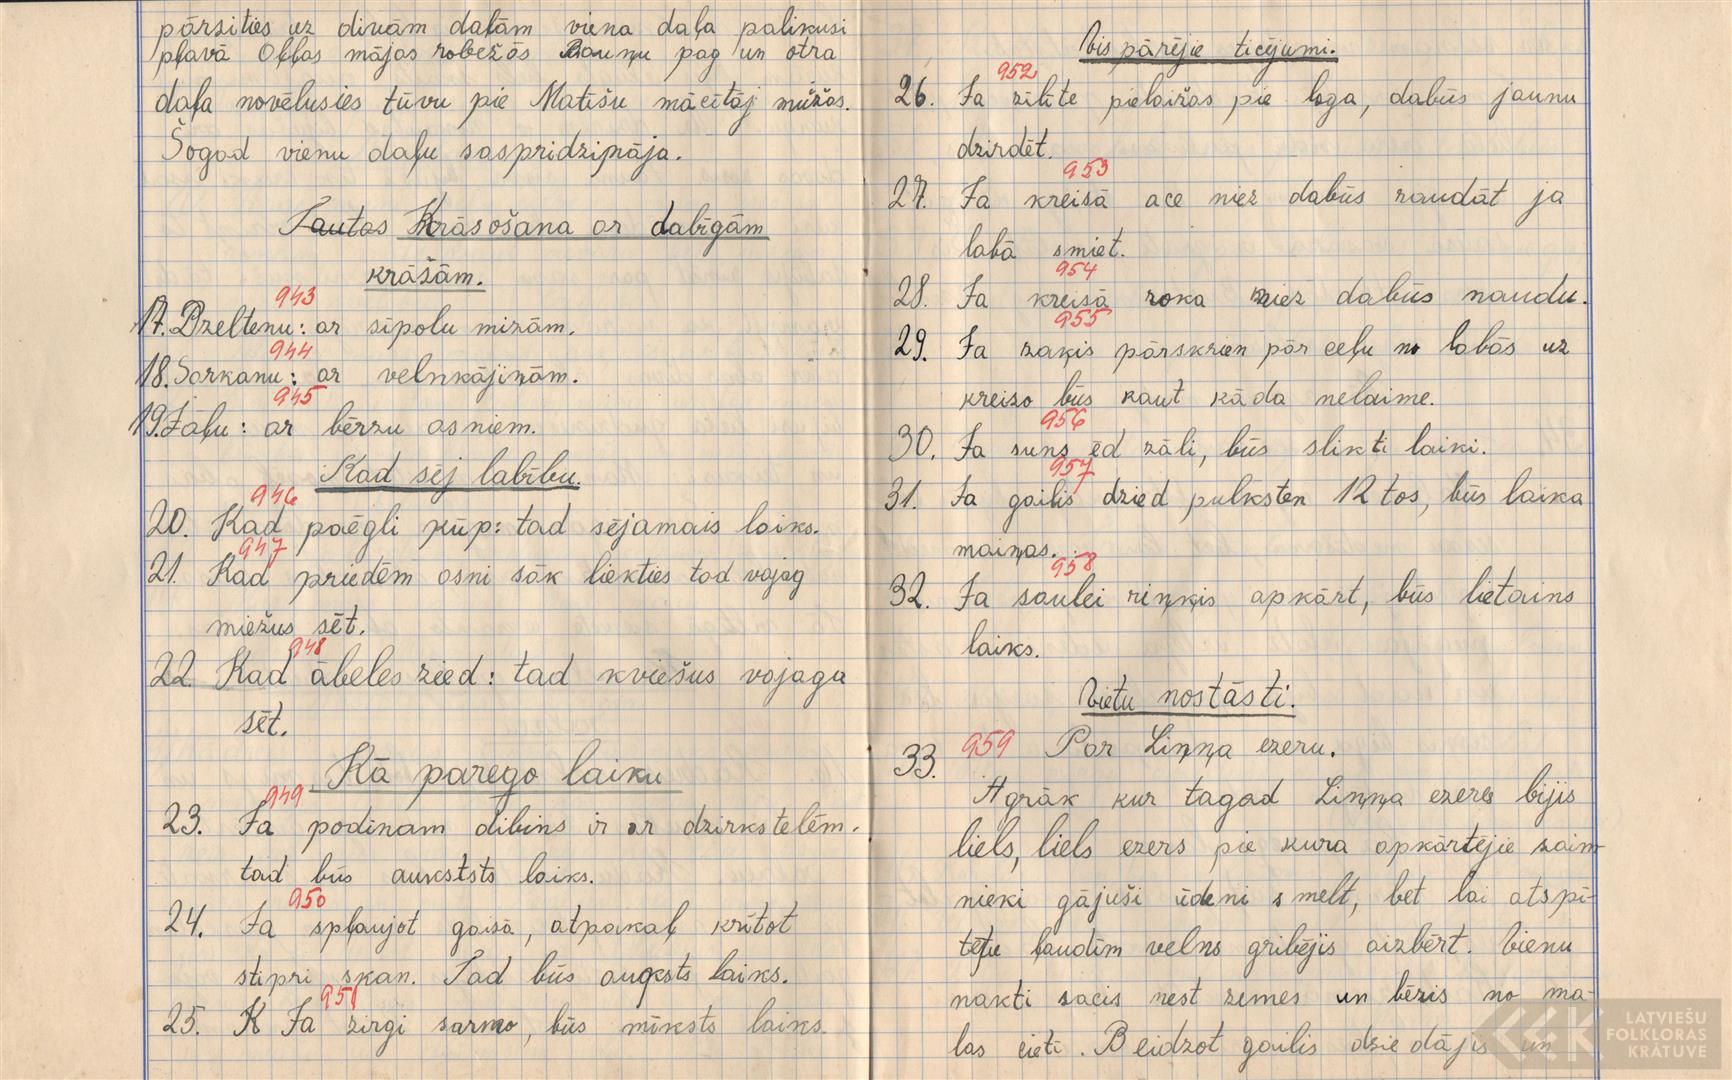 pārsities uz divām daļām viena daļa palikusi
pļavā Oļļas mājas robežās Bauņu pag un otra
daļa novēlusies tūvu pie Matīšu mācītāj mužas.
Šogad vienu daļu saspridzināja.
Tautas Krāsošana ar dabīgām
krāšām.
943
17. Dzeltenu: ar sīpolu mizām.
944
18. Sarkanu: ar velnkājiņām.
945
19. Zāļu: ar bērzu asniem.
Kad sēj labību.
946
20. Kad paēgli kūp: tad sējamais laiks.
947
21. Kad priedēm asni sāk liekties tad vajag
miežus sēt.
948
22. Kad ābeles zied: tad kviešus vajaga
sēt.
Kā parego laiku
949
23. Ja podiņam dibins ir ar dzirkstelēm.
tad būs aukststs laiks.
950
24. Ja spļaujot gaisā, atpakaļ krītot
stipri skan. Tad būs augksts laiks.
951
25. K Ja zirgi sarmo, būs mīksts laiks.
Vispārējie ticējumi.
952
26. Ja zīlīte pielaižas pie loga, dabūs jaunu
dzirdēt.
953
27. Ja kreisā ace niez dabūs raudāt ja
labā smiet.
954
28. Ja kreisā roka niez dabūs naudu.
955
29. Ja zaķis pārskrien pār ceļu no labās uz
kreiso būs kaut kāda nelaime.
956
30. Ja suns ēd zāli, būs slikti laiki.
957
31. Ja gailis dzied pulksten 12 tos, būs laika
maiņas.
958
32. Ja saulei riņķis apkārt, būs lietains
laiks.
Vietu nostāsti.
33. 959 Par Liņņa ezeru.
Agrāk kur tagad Liņņa ezers bijis
liels, liels ezers pie kura apkārtējie saim-
nieki gājuši ūdeni smelt, bet lai atspī-
tētu ļaudīm velns gribējis aizbērt. Vienu
nakti sācis nest zemes un bēris no ma-
las cieti. Beidzot gailis dziedājis un
LATVIEŠU
FOLKLORAS
KRĀTUVE